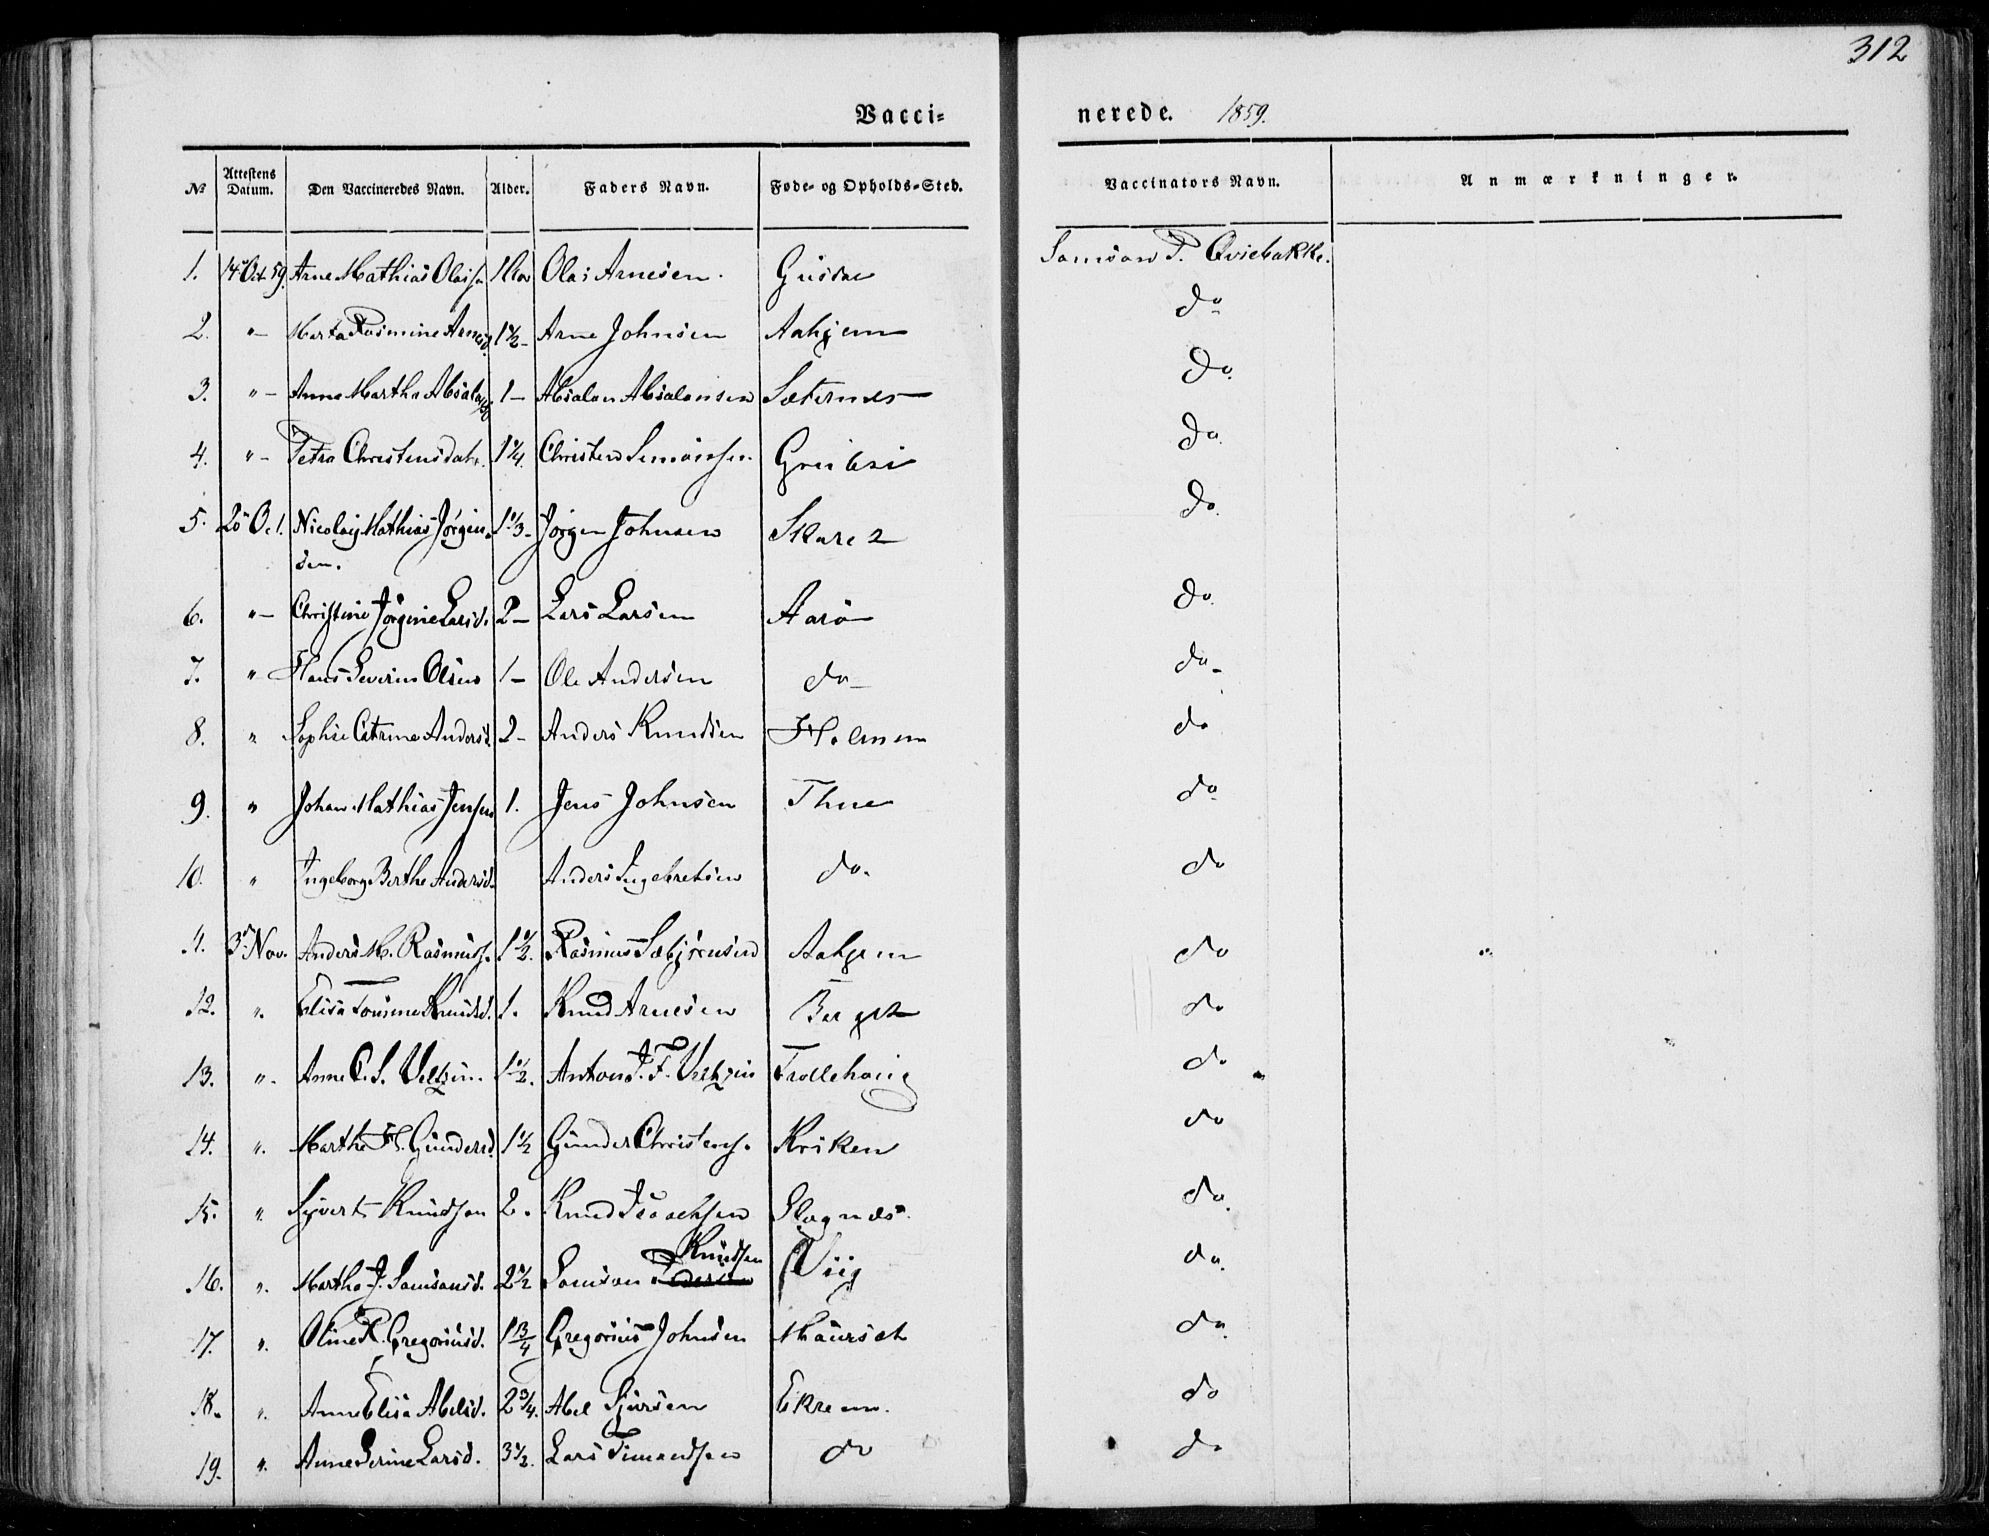 312
Vacci- nerede. 1859.
№ Attestens Datum. Den Vaccineredes Navn. Alder. Faders Navn. Føde- og Opholds-Sted. Vaccinators Navn. Anmærkninger.
1. 14 Oct 59. Arne Mathias Olais 1 Olai Arnesen. Gusdal Samson P. Qviebakke.
2. "- Marta Rasmine Arnesd. 1½- Arne Johnsen Aahjem do
3. "- Anne Martha Absalonsd 1- Absalon Absalonsen Sæternes do.
4. "- Petra Christensdatr. 1¼. Christen Simonsen Grubsi do.
5. 20 Oct. Nicolaij Mathias Jørgen- 1⅓- Jørgen Johnsen Skare 2 do.
sen.
6. "- Christine Jørgine Larsd. 2- Lars Larsen Aarø do.
7. " Hans Severin Olsen 1- Ole Andersen do- do-
8. " Sophie Catrine Andersd. 2- Anders Knudsen Holmen do
9. " Johan Mathias Jensen 1. Jens Johnsen Thue do
10. " Ingeborg Berthe Andersd. Anders Ingebretsen do. do
11. 3 Nov. Anders M. Rasmuss. 1½. Rasmus Sebjørnsen Aahjem do
12. ". Elisa Knudsd. 1. Knud Arnesen Berget do
13. ". Anne C. S. Veltzin. 1½. Anton J. F. Veltzin Trollehoug do
14. ". Martha H. Gundersd. 1½ Gunder Christens. Kroken do
15. ". Sivert Knudsen 2. Knud Isaachsen Slagnes. do.
Knudsen
16. ". Martha J. Samsonsd. 2½ Samson Pedersen Viig do.
17. ". Oline R. Gregoriusd. 1 13/4 Gregorius Johnsen Maurset do.
18. ". Anne Elisa Abelsd. 2¾. Abel Sjursen Ekrem. do
19. ". Anne Serine Larsd. 3½. Lars Timandsen do do